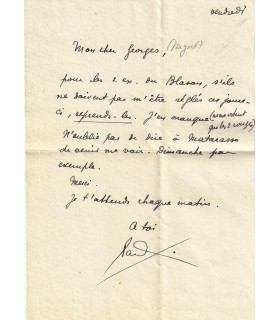 vendredi
Mon cher Georges, (Hugnet)
pour les 2 ex. du Blason, s'ils
ne doivent pas m'être réglés ces jours-
ci, reprends-les. J'en manque (
N'oublie pas de dire à Matarasso
de venir me voir. Dimanche par
exemple.
Merci.
Je t'attends chaque matin.
A toi
Paul